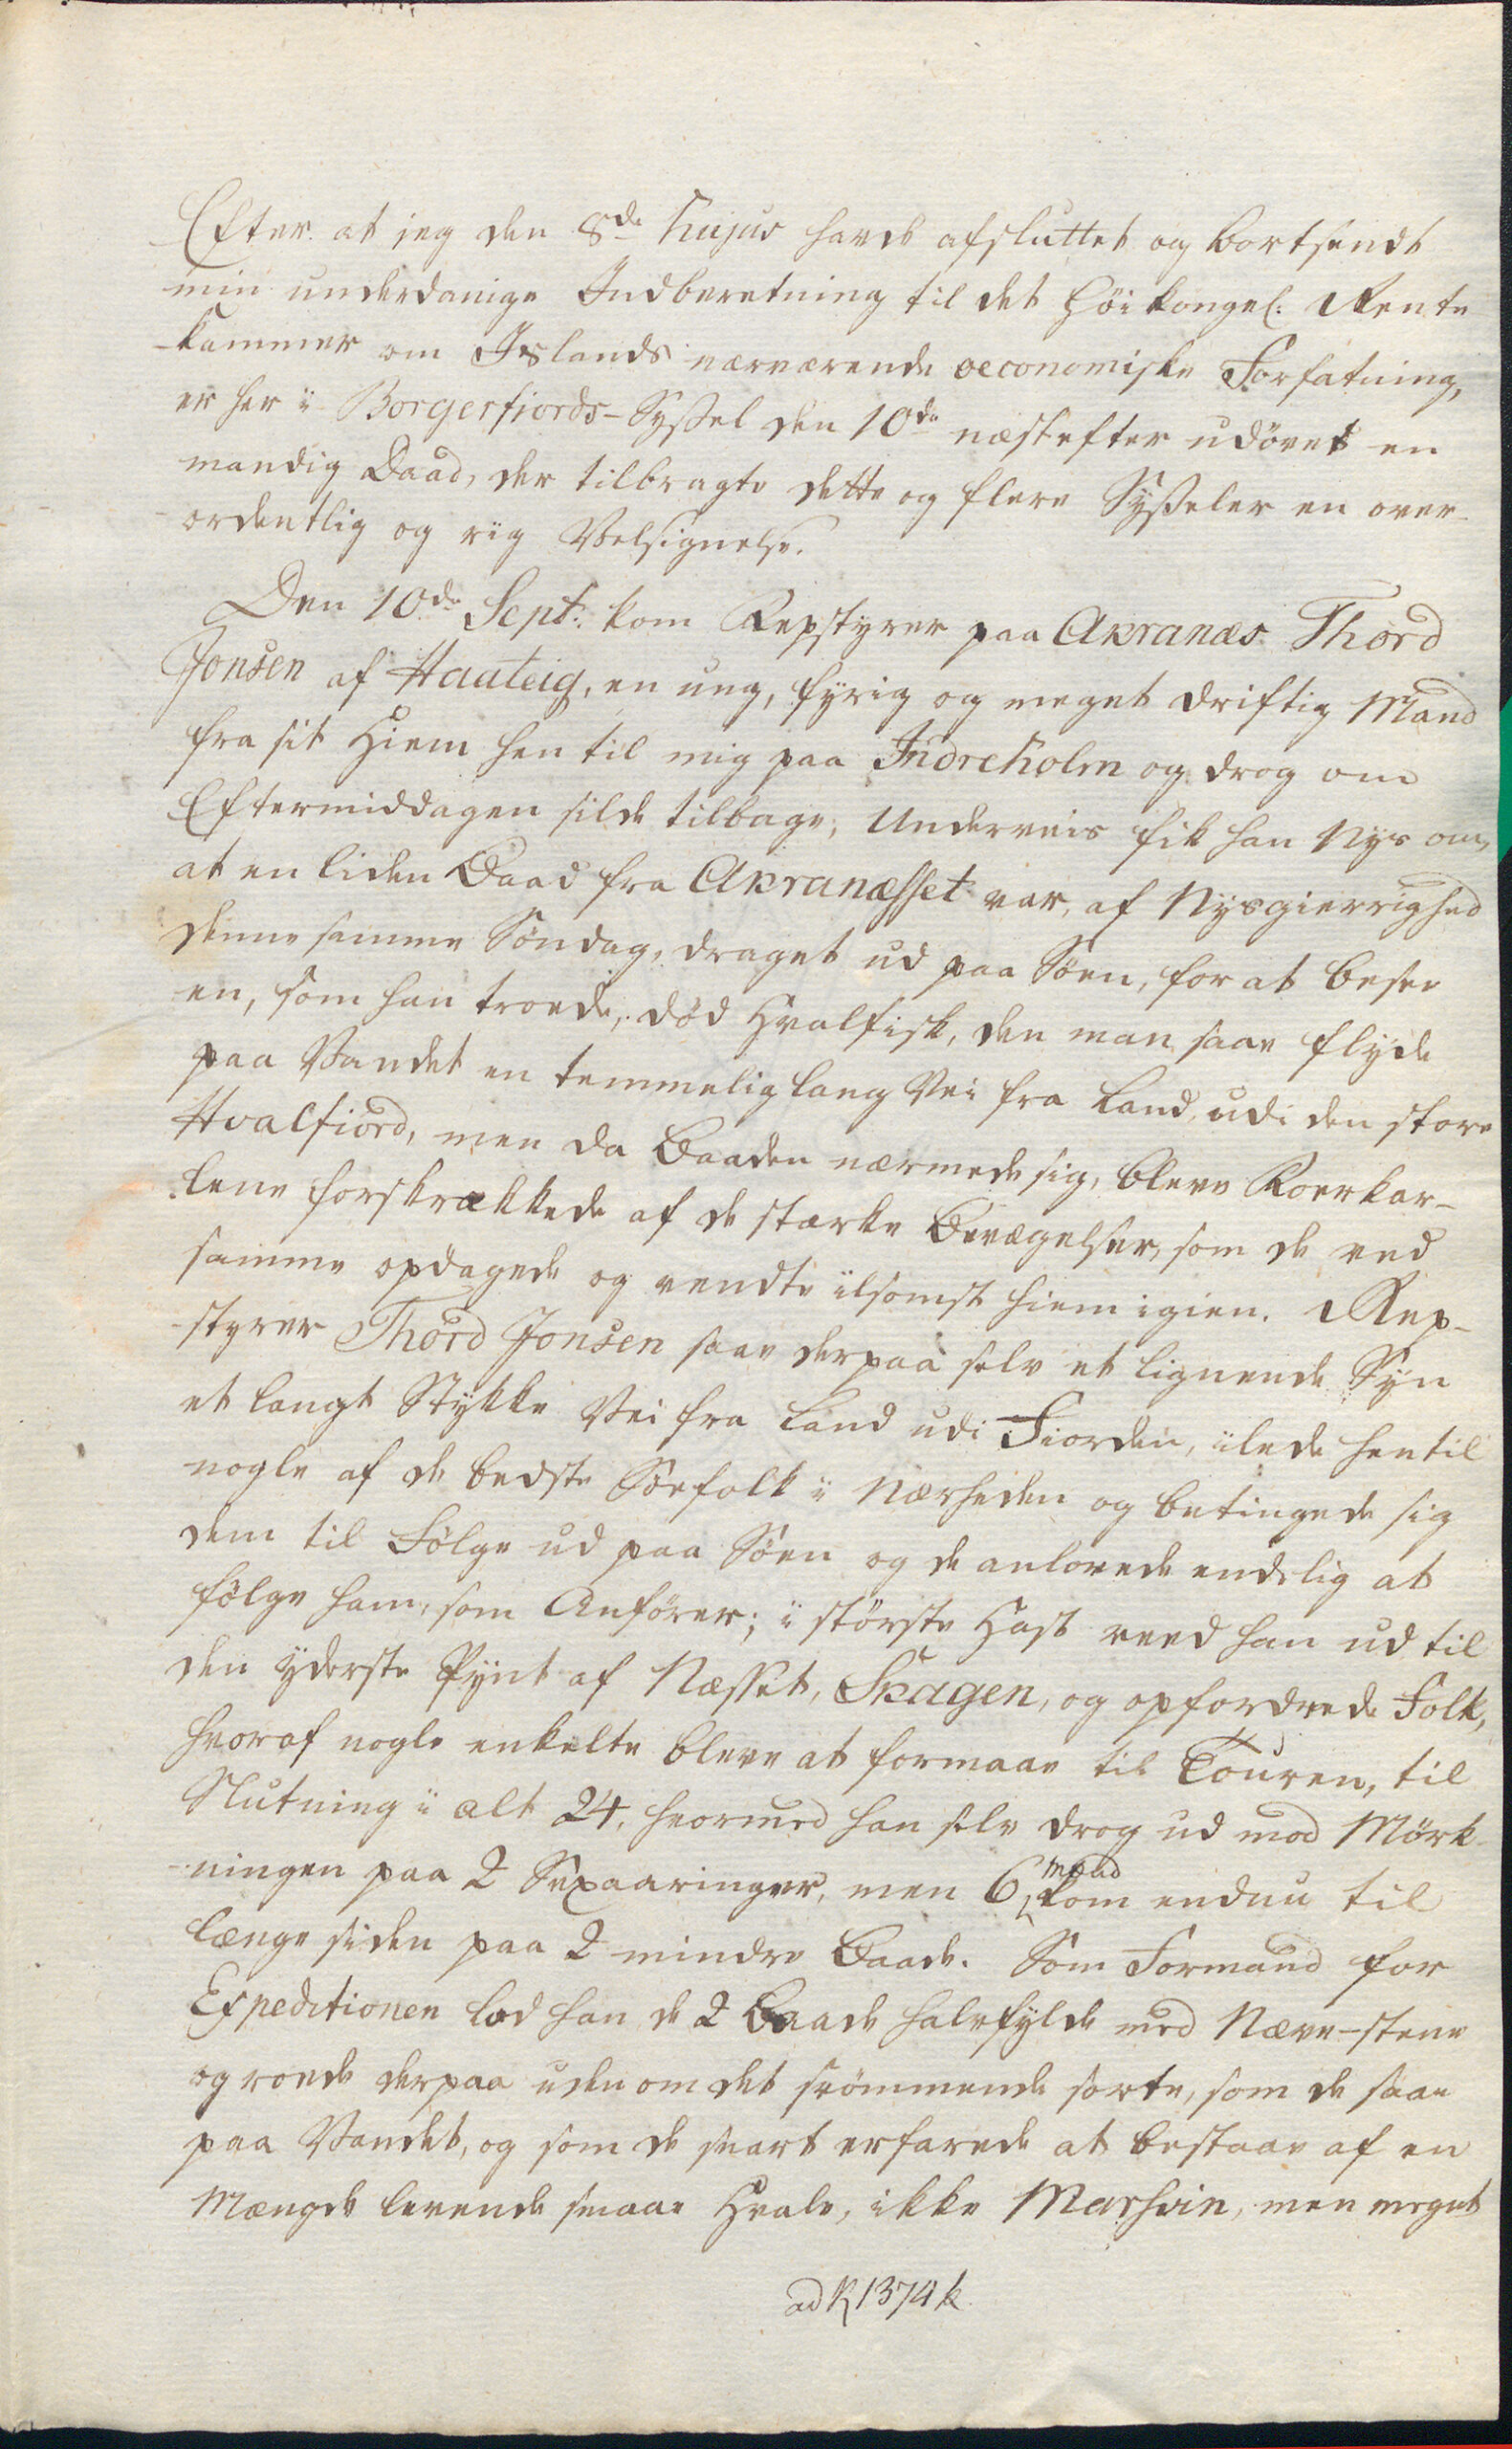 Efter at jeg den 8de hujus havde afsluttet og bortsendt
min underdanige Indberetning til det høikongel: Rente
-kammer om Islands nærværende oeconomiske Forfatning,
er her i Borgerfiords-Syssel den 10de næstefter udövet en
mandig Daad, der tilbragte dette og flere Sysseler en over-
ordentlig og rig Velsignelse.
Den 10de Sept: kom Repstyrer paa Akranæs Thord
Jonsen af Haateig, en ung, fyrig og meget driftig Mand
fra sit Hiem hen til mig paa Indreholm og drog om
Eftermiddagen silde tilbage; Underveis fik han Nys om,
at en liden Baad fra Akranæsset var, af Nysgierrighed
denne samme Söndag, draget ud paa Söen, for at besee
en, som han troede, död Hvalfisk, den man saae flyde
paa Vandet en temmelig lang Vei fra Land, udi den store
Hvalfiord, men da Baaden nærmede sig, bleve Roerkar-
lene forskrækkede af de stærke Bevægelser, som de ved
samme opdagede og vendte ilsomst hiem igien. Rep-
-styrer Thord Jonsen saae derpaa selv et lignende Syn
et langt Stykke Vei fra Land udi Fiorden, ilede hen til
nogle af de bedste Söefolk i Nærheden og betingede sig
dem til Fölge ud paa Söen og de anlovede endelig at
fölge ham, som Anförer; i störste Hast reed han ud til
den yderste Pynt af Næsset, Skagen, og opfordrede Folk,
hvoraf nogle enkelte bleve at formaae til Touren, til
Slutning i alt 24, hvormed han selv drog ud mod Mörk-
-ningen paa 2 Sexaaringer, men 6 Mand kom endnu til
længe siden paa 2 mindre Baade. Som Formand for
Expeditionen lod han de 2 Baade halvfylde med Næve-stene
og roede derpaa uden om det svömmende sorte, som de saae
paa Vandet, og som de snart erfarede at bestaae af en
Mængde levende smaae Hvale, ikke Marsvin, men meget
ad N 1374 k